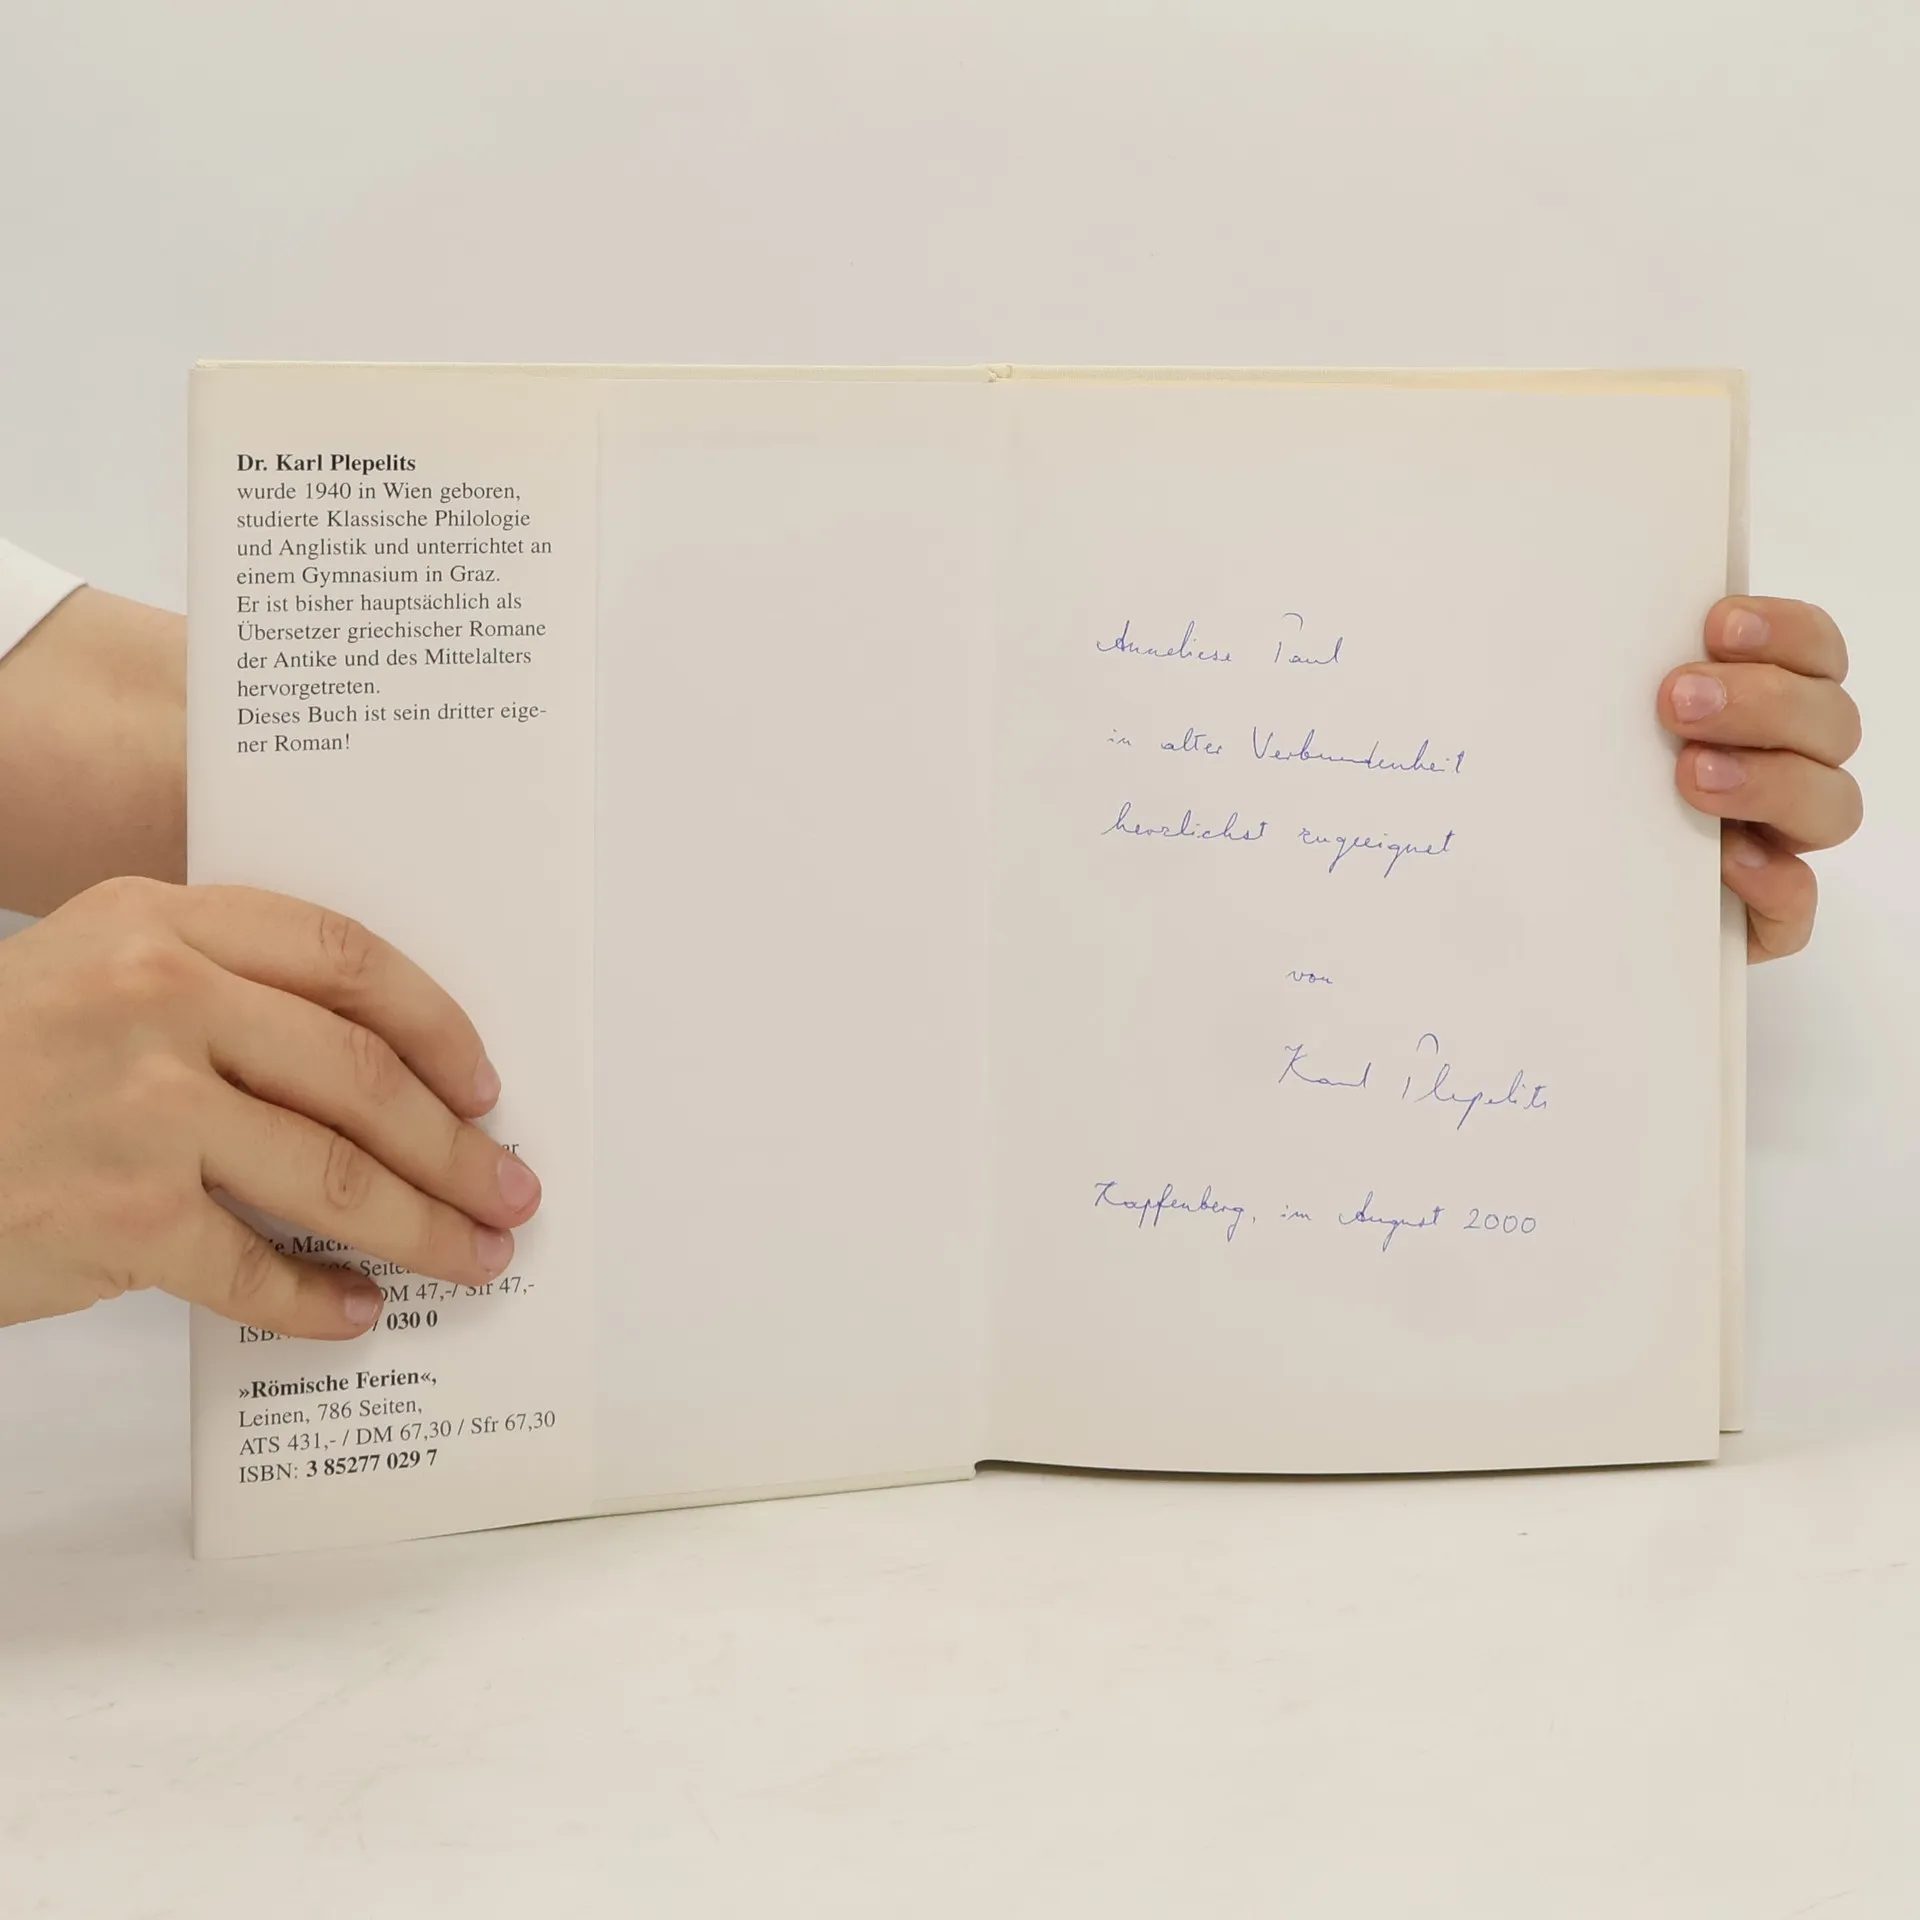 Dr. Karl Plepelits
wurde 1940 in Wien geboren,
studierte Klassische Philologie
und Anglistik und unterrichtet an
einem Gymnasium in Graz.
Er ist bisher hauptsächlich als
Übersetzer griechischer Romane
der Antike und des Mittelalters
hervorgetreten.
Dieses Buch ist sein dritter eige-
ner Roman!
DM 47,-/ Sfr 47,-
030 0
»Römische Ferien«,
Leinen, 786 Seiten,
ATS 431,- / DM 67,30 / Sfr 67,30
ISBN: 3 85277 029 7
Anneliese Paul
in alter Verbundenheit
herzlichst zugeeignet
von
Karl Plepelits
Kapfenberg, im August 2000